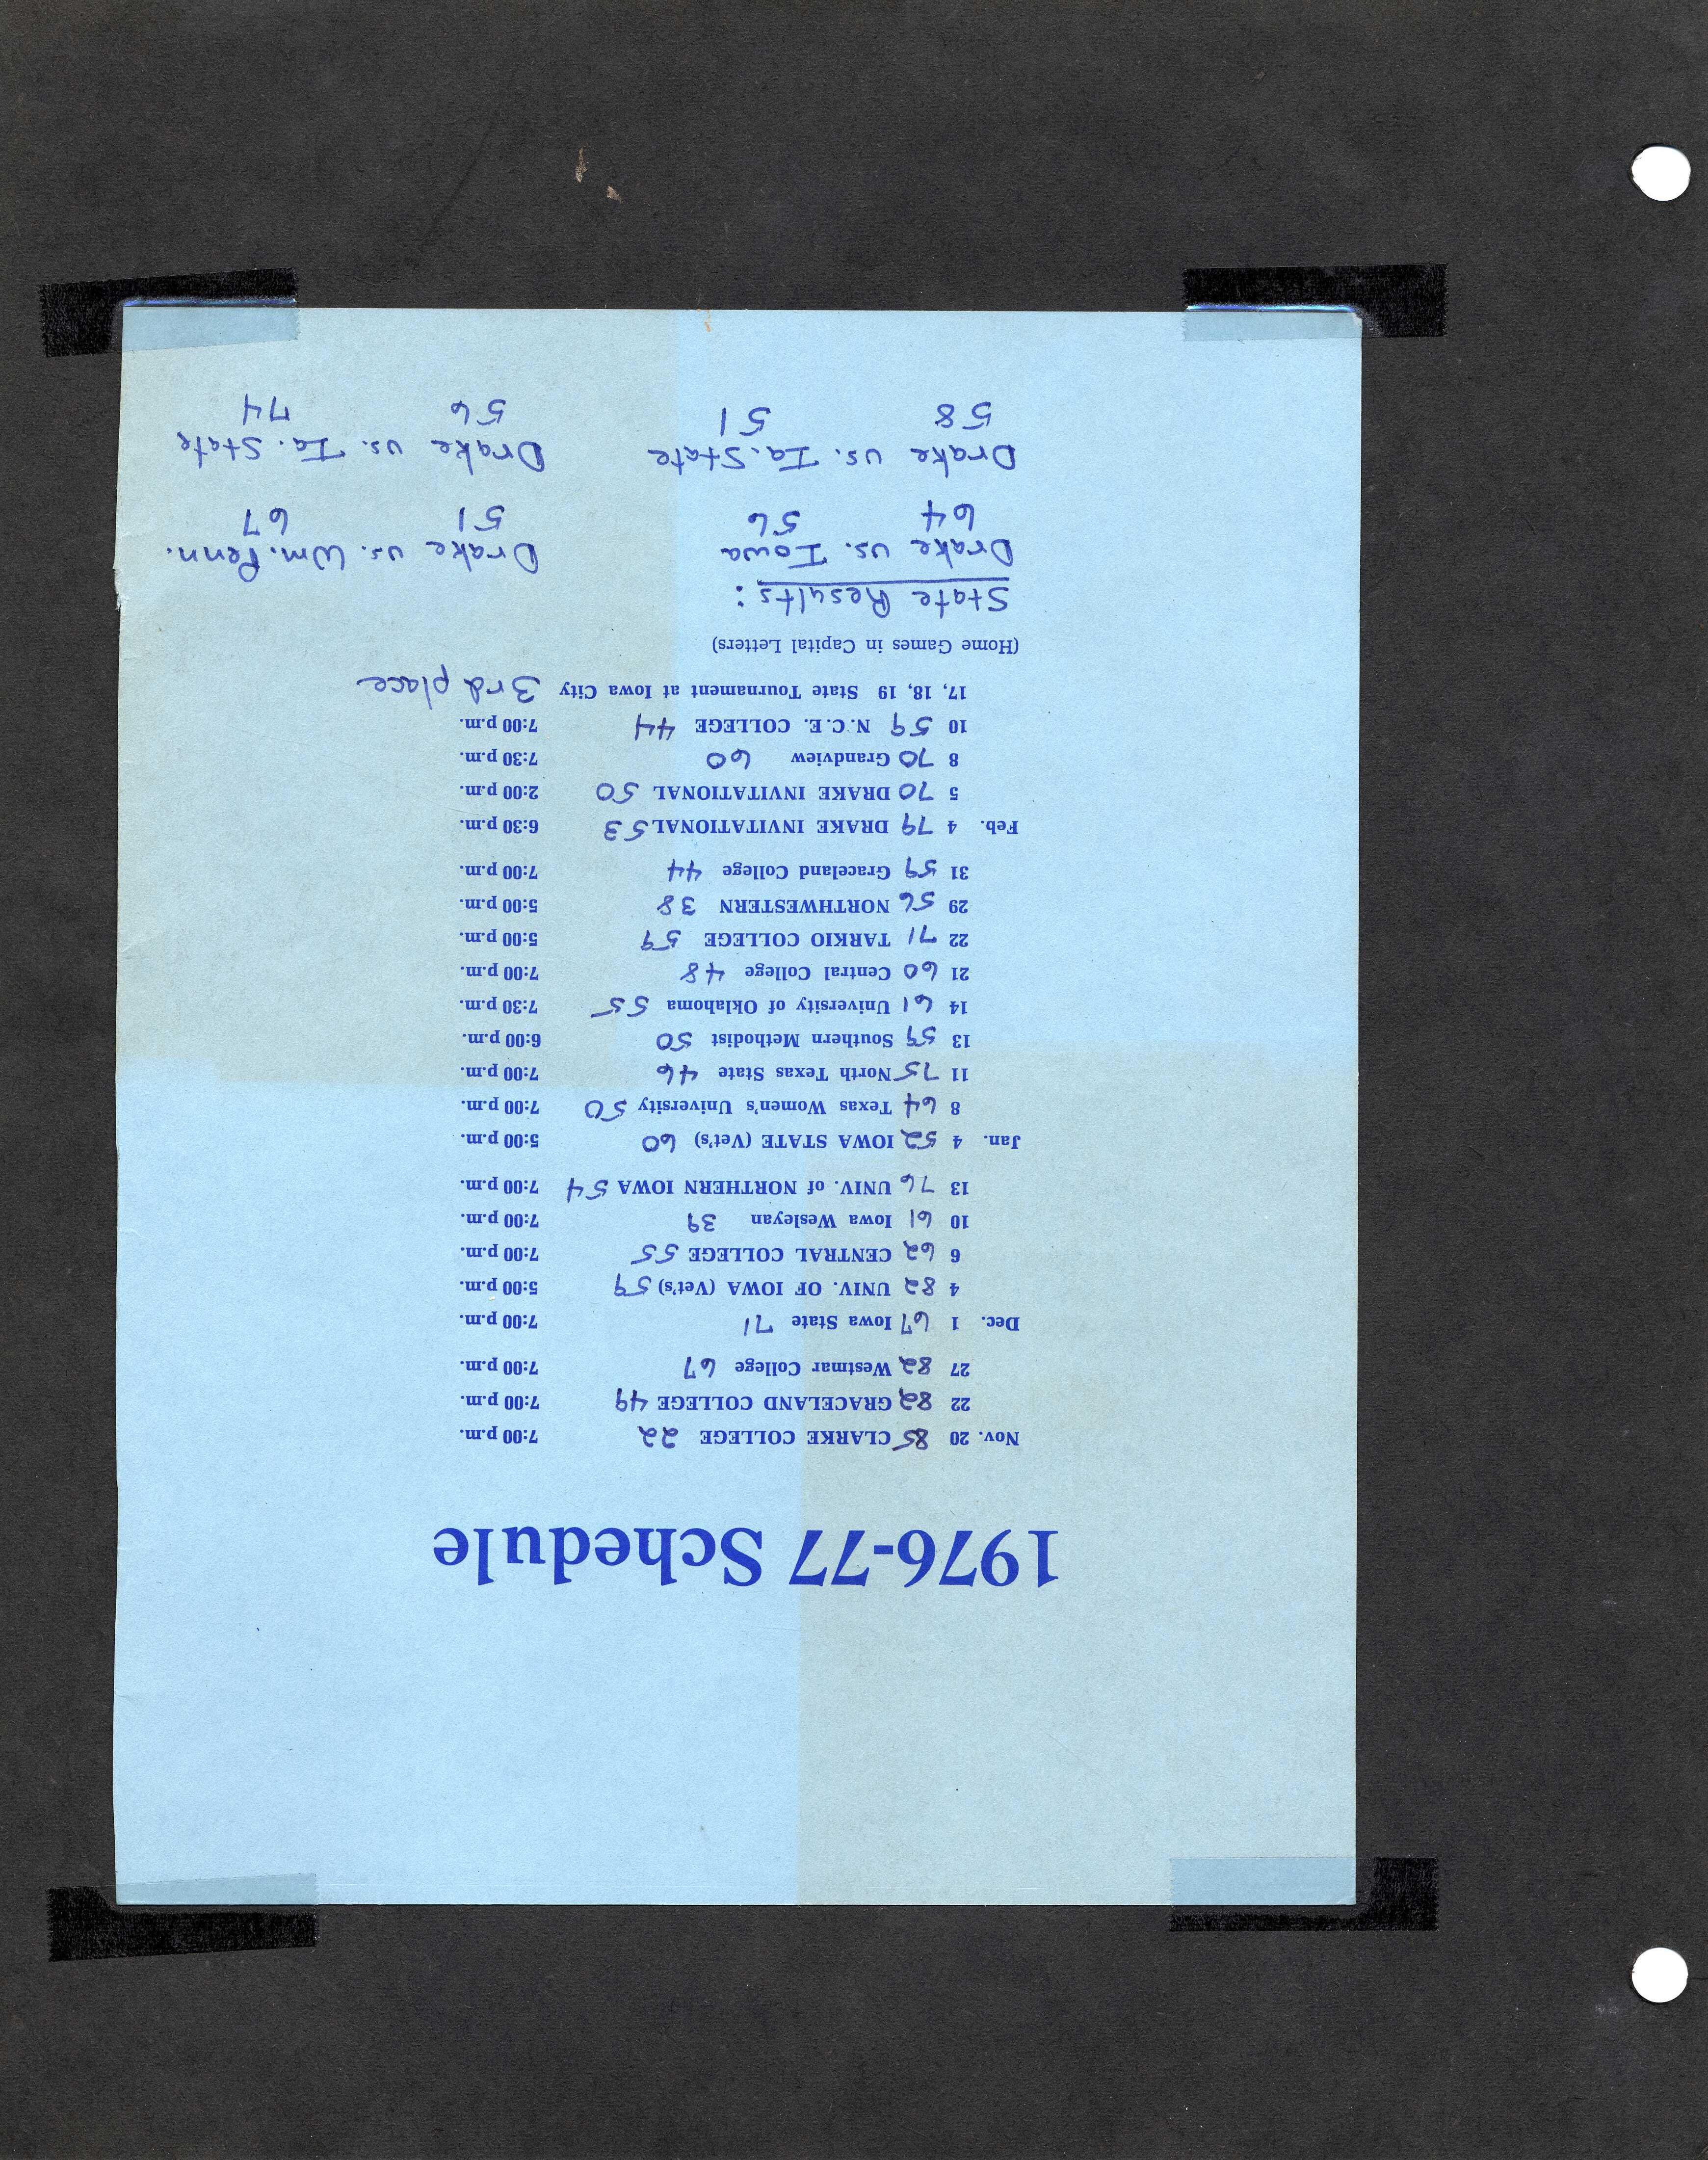 1976-77 Schedule
Nov. 20 85 CLARKE COLLEGE 22 7:00 p.m.
22 82 GRACELAND COLLEGE 49 7:00 p.m.
27 82 Westmar College 67 7:00 p.m.
Dec. 1 67 Iowa State 71 7:00 p.m.
4 82 UNIV. OF IOWA (Vet's) 59 5:00 p.m.
6 62 CENTRAL COLLEGE 55 7:00 p.m.
10 61 Iowa Wesleyan 39 7:00 p.m.
13 76 UNIV. of NORTHERN IOWA 54 7:00 p.m.
Jan. 4 52 IOWA STATE (Vet's) 60 5:00 p.m.
8 64 Texas Women's University 50 7:00 p.m.
11 75 North Texas State 46 7:00 p.m.
13 59 Southern Methodist 50 6:00 p.m.
14 61 University of Oklahoma 55 7:30 p.m.
21 60 Central College 48 7:00 p.m.
22 71 TARKIO COLLEGE 59 5:00 p.m.
29 56 NORTHWESTERN 38 5:00 p.m.
31 59 Graceland College 44 7:00 p.m.
Feb. 4 79 DRAKE INVITATIONAL 53 6:30 p.m.
5 70 DRAKE INVITATIONAL 50 2:00 p.m.
8 70 Grandview 60 7:30 p.m.
10 59 N.C.E. COLLEGE 44 7:00 p.m.
17, 18, 19 State Tournament at Iowa City 3rd place
(Home Games in Capital Letters)
State Results:
Drake vs. Iowa Drake vs. Wm. Penn.
64 56 51 67
Drake vs. Ia. State Drake vs. Ia. State
58 51 56 74